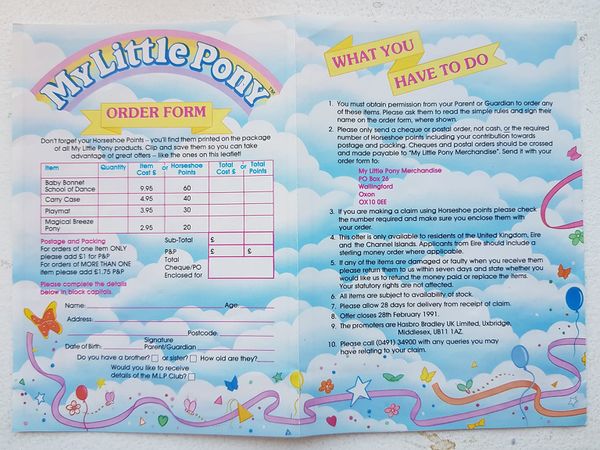 My Little Pony™
ORDER FORM
Don't forget your Horseshoe Points – you'll find them printed on the package
of all My Little Pony products. Clip and save them so you can take
advantage of great offers – like the ones on this leaflet!
Item Quantity Item Cost £ or Horseshoe Points Total Cost £ or Total Points
Baby Bonnet
School of Dance 9.95 60
Carry Case 4.95 40
Playmat 3.95 30
Magical Breeze
Pony 2.95 20
Postage and Packing
For orders of one item ONLY
please add £1 for P&P
For orders of MORE THAN ONE
item please add £1.75 P&P
Please complete the details
below in block capitals.
Sub-Total £
P&P £
Total
Cheque/PO
Enclosed for £
Name: Age:
Address:
Postcode.
Signature
Date of Birth Parent/Guardian
Do you have a brother? or sister? How old are they?
Would you like to receive
details of the M.L.P Club?
WHAT YOU
HAVE TO DO
1. You must obtain permission from your Parent or Guardian to order any
of these items. Please ask them to read the simple rules and sign their
name on the order form, where shown.
2. Please only send a cheque or postal order, not cash, or the required
number of Horseshoe points including your contribution towards
postage and packing. Cheques and postal orders should be crossed
and made payable to "My Little Pony Merchandise". Send it with your
order form to:
My Little Pony Merchandise
PO Box 26
Wallingford
Oxon
OX10 0EE
3. If you are making a claim using Horseshoe points please check
the number required and make sure you enclose them with
your order.
4. This offer is only available to residents of the United Kingdom, Eire
and the Channel Islands. Applicants from Eire should include a
sterling money order where applicable.
5. If any of the items are damaged or faulty when you receive them
please return them to us within seven days and state whether you
would like us to refund the money paid or replace the items.
Your statutory rights are not affected.
6. All items are subject to availability of stock.
7. Please allow 28 days for delivery from receipt of claim.
8. Offer closes 28th February 1991.
9. The promoters are Hasbro Bradley UK Limited, Uxbridge,
Middlesex, UB11 1AZ.
10. Please call (0491) 34900 with any queries you may
have relating to your claim.